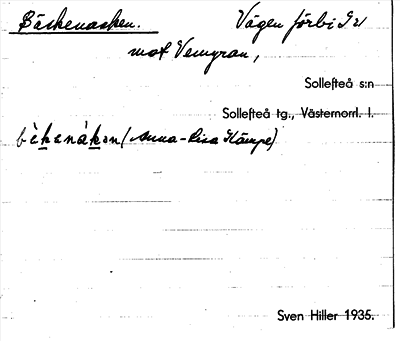 Bäskenacken. Vägen förbi I 21
mot Vemyran,
Sollefteå s:n
Sollefteå tg., Västernorrl. l.
(Anna-Lisa Kämpe)
Sven Hiller 1935.